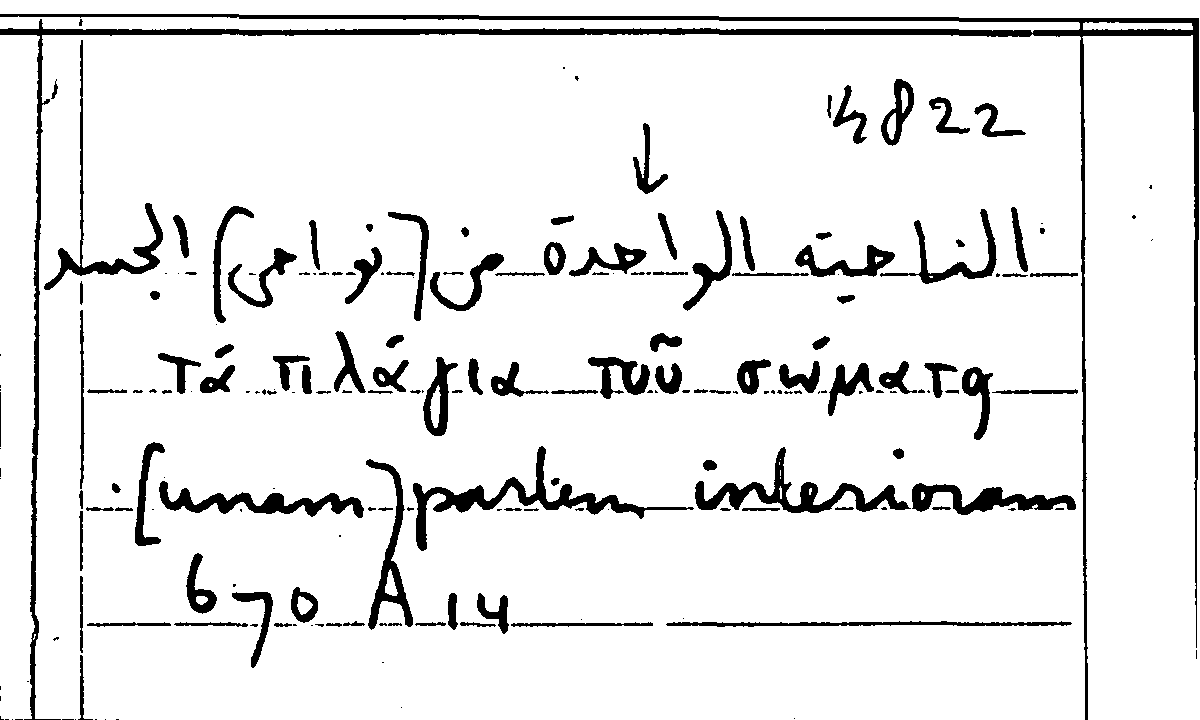 ½822
↓
الناحية الواحدة من [نواحى] الجسد
τά πλάγια τοῦ σώματα
[unam] partem interioram
670 A 14